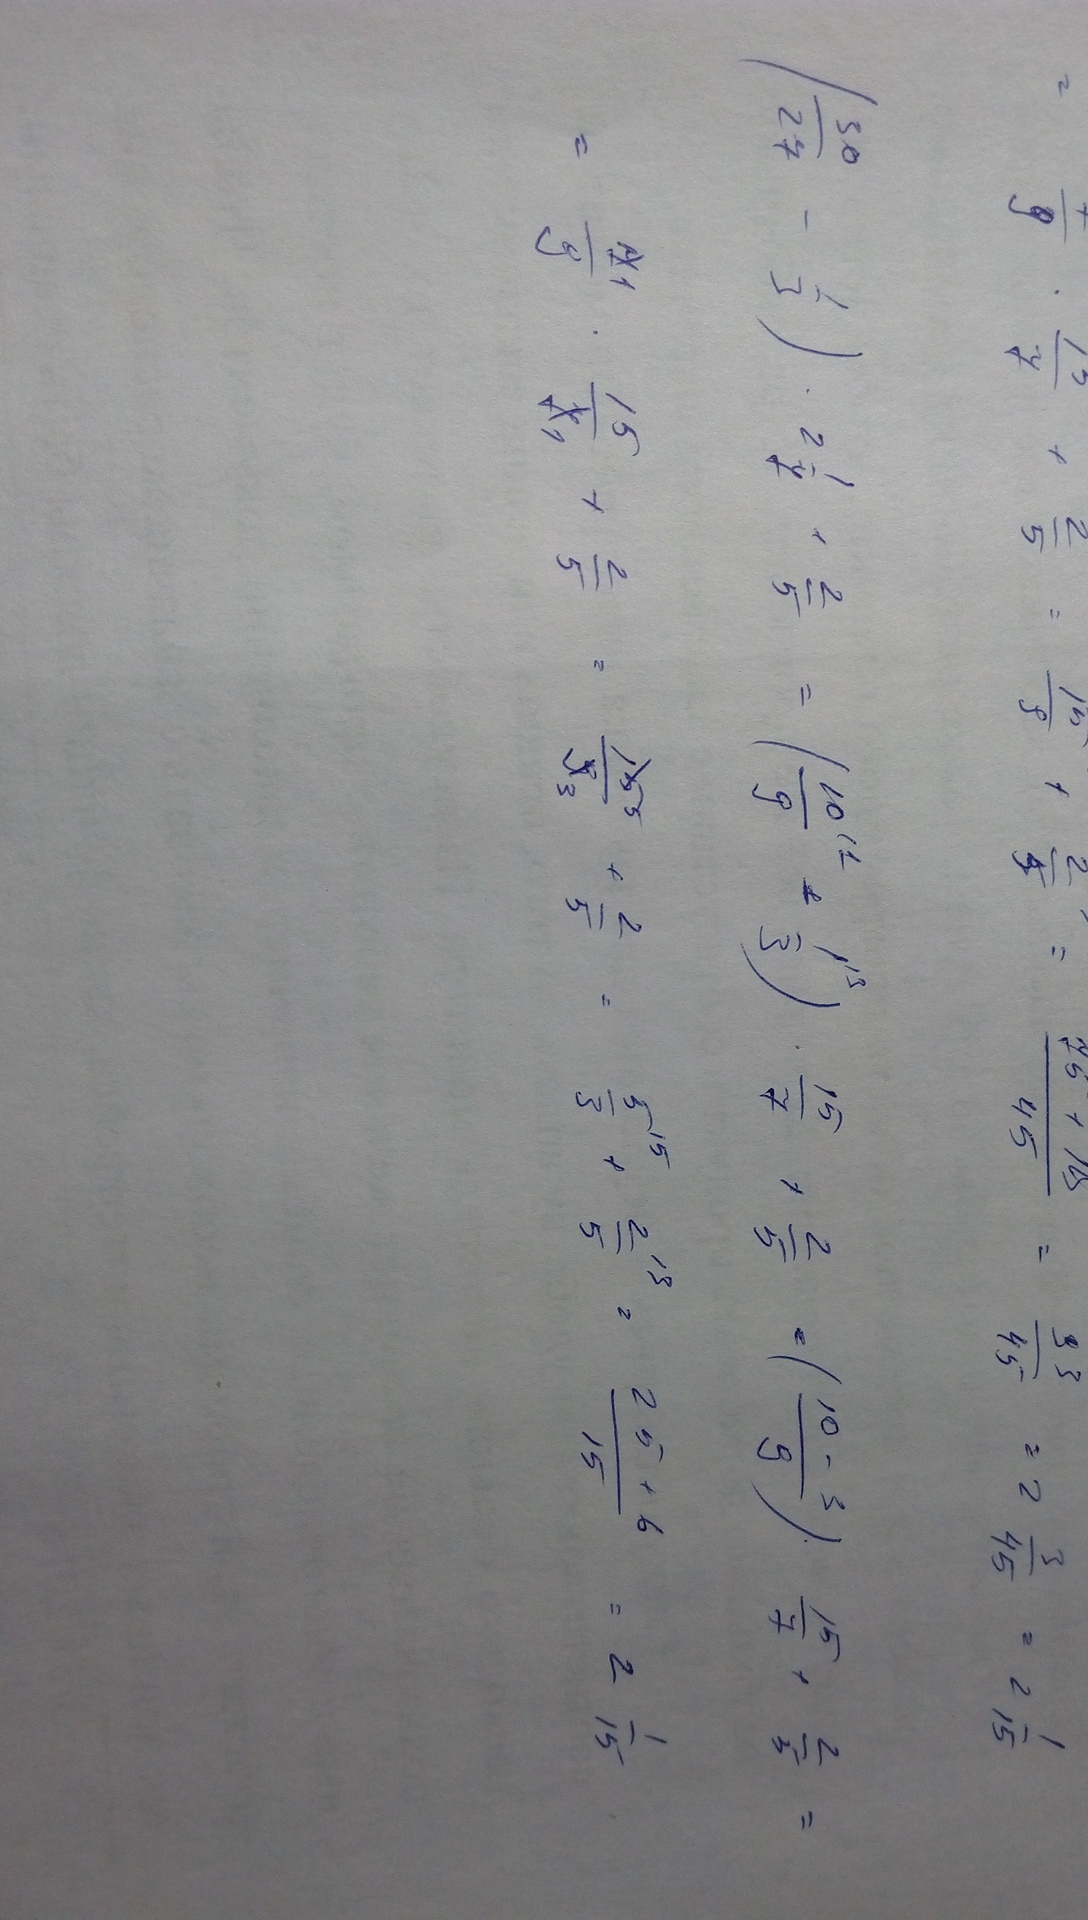 = 7/9 · 15/7 + 2/5 = 15/9 + 2/5 = (75 + 18)/45 = 93/45 = 2 3/45 = 2 1/15
(30/27 - 1/3) · 2 1/7 + 2/5 = (10/9 - 1/3) · 15/7 + 2/5 = ((10 - 3)/9) · 15/7 + 2/5 =
= 7/9 · 15/7 + 2/5 = 15/9 + 2/5 = 5/3 + 2/5 = (25 + 6)/15 = 2 1/15